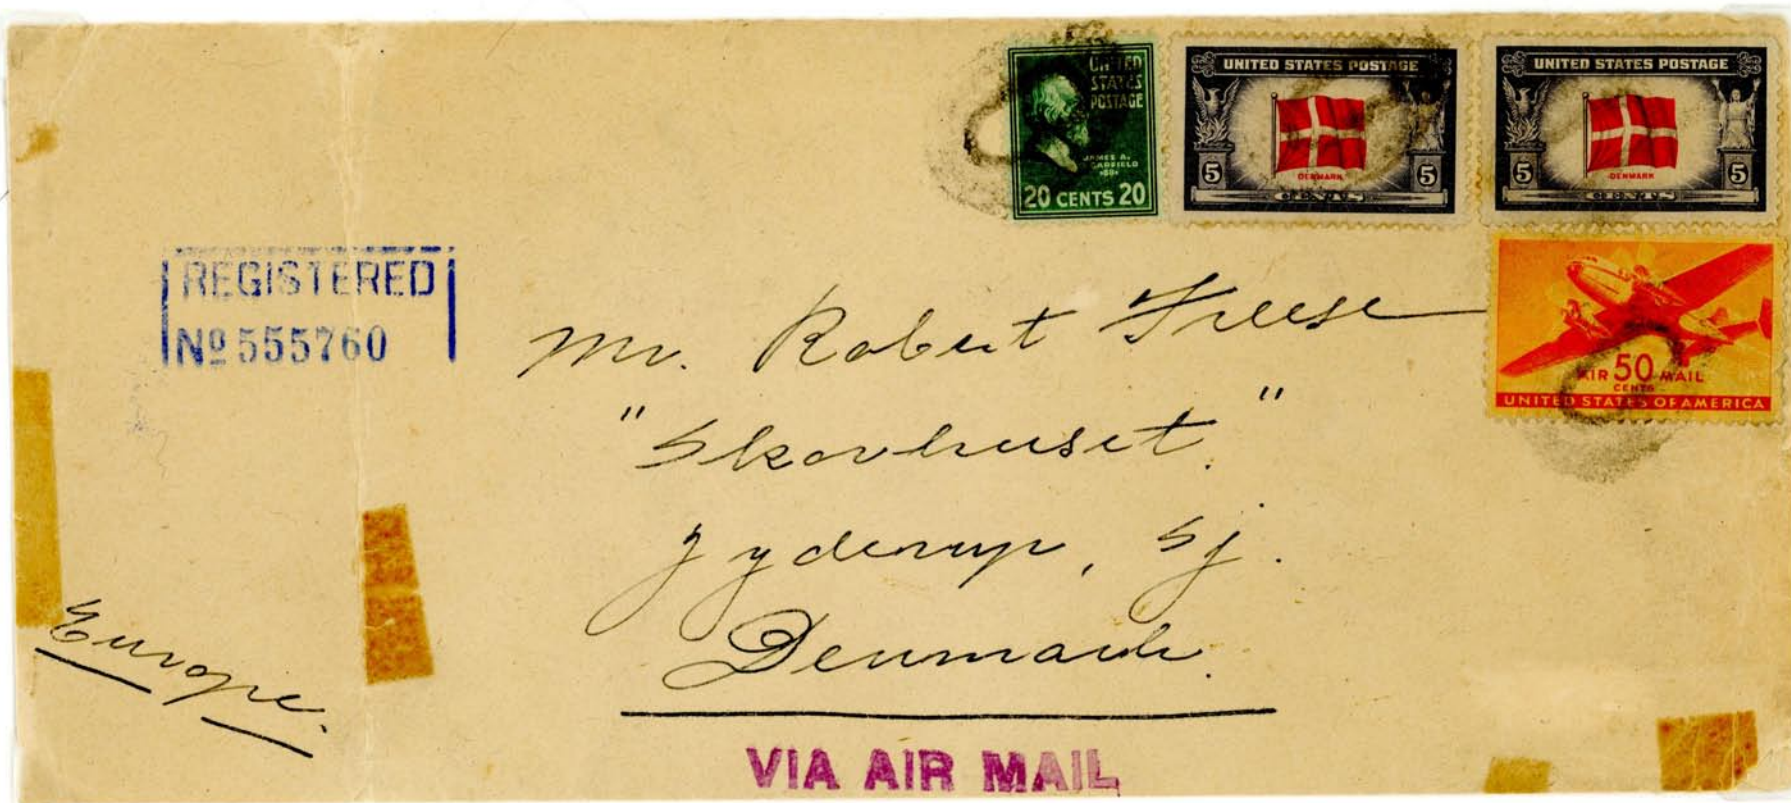 UNITED
STATES
POSTAGE
JAMES A.
GARFIELD
20 CENTS 20
UNITED STATES POSTAGE
5 DENMARK 5
CENTS
UNITED STATES POSTAGE
5 DENMARK 5
CENTS
AIR 50 MAIL
CENTS
UNITED STATES OF AMERICA
REGISTERED
Nº 555760
Mr. Robert Freese
"Skovhuset"
Jyderup, Sj.
Denmark.
Europe.
VIA AIR MAIL